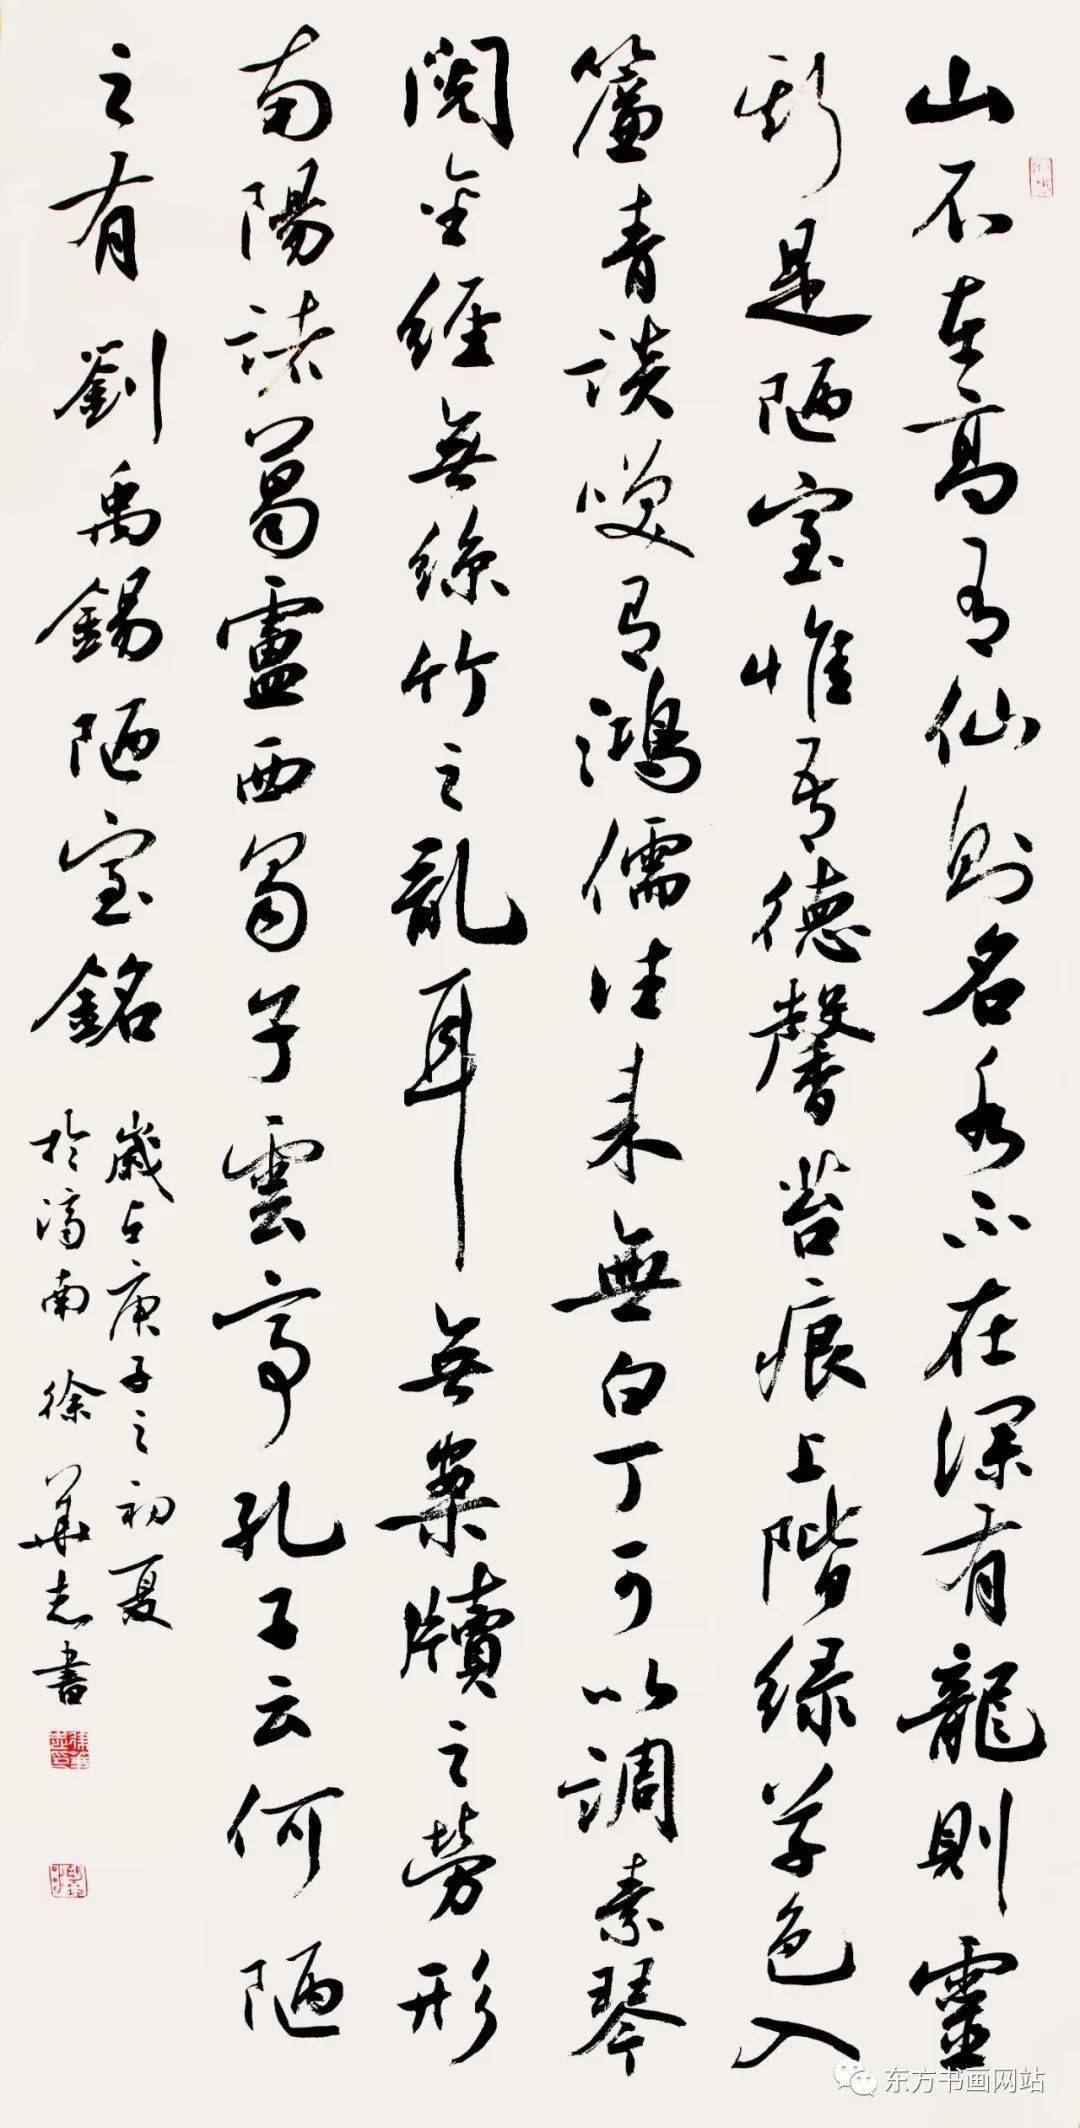 山不在高有仙則名水不在深有龍則靈
斯是陋室惟吾德馨苔痕上階绿草色入
簾青談笑有鴻儒往来無白丁可以調素琴
閱金經無絲竹之亂耳無案牘之勞形
南陽諸葛廬西蜀子雲亭孔子云何陋
之有 劉禹錫陋室銘
歲在庚子之初夏
於濟南 徐華志書
东方书画网站